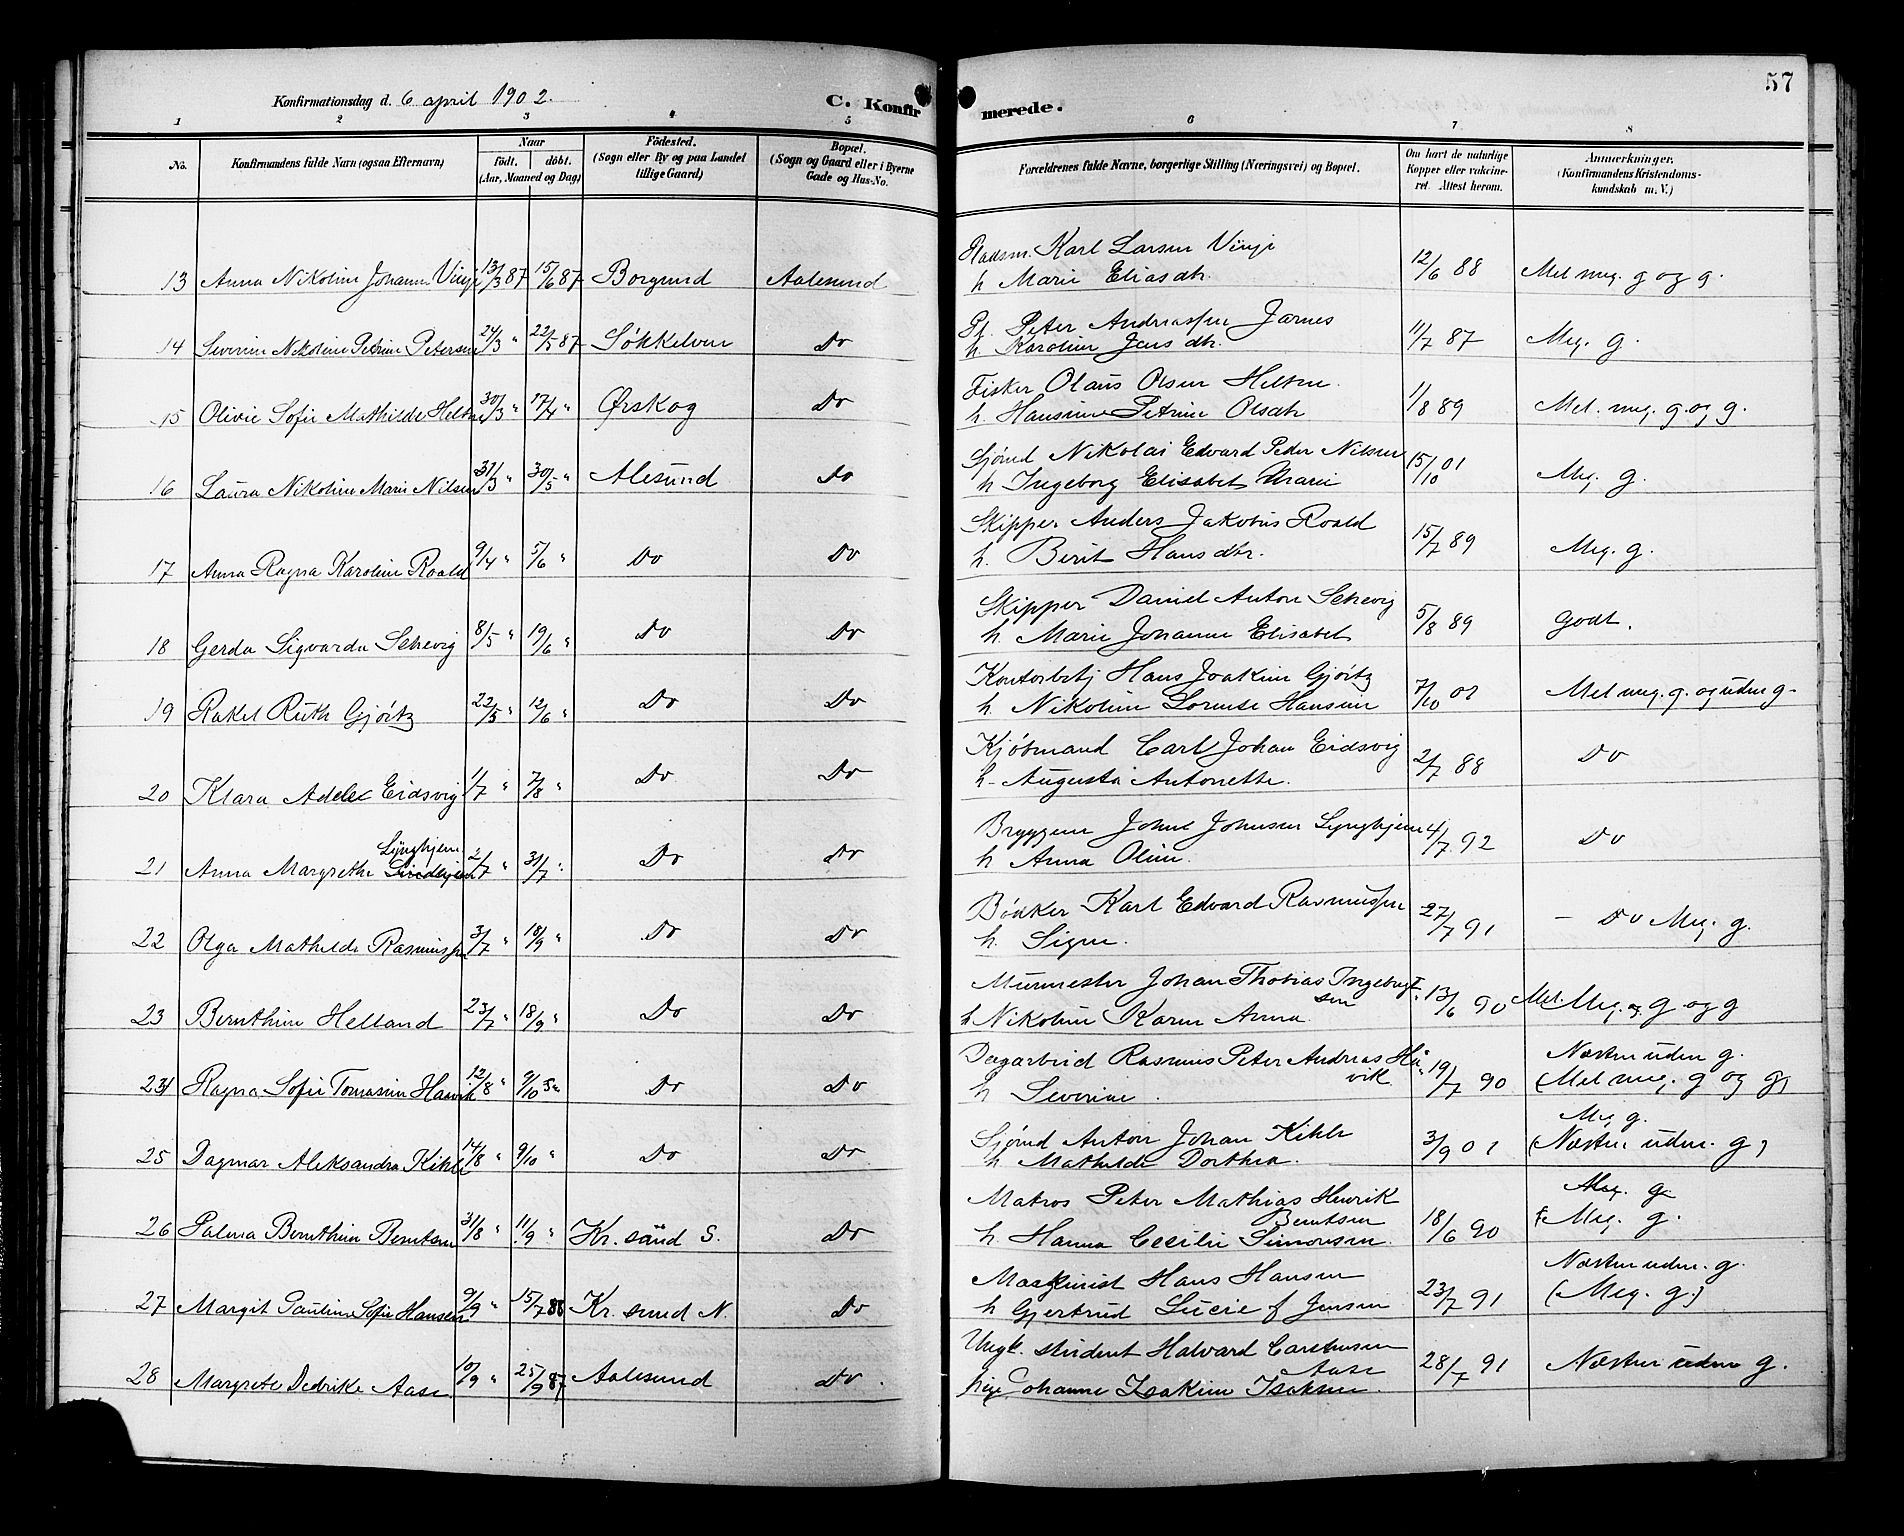 57
Konfirmationsdag d. 6 april 1902.
C. Konfirmerede.
1 2 3 4 5 6 7 8
No. Konfirmandens fulde Navn (ogsaa Efternavn) Naar født. døbt. (Aar, Maaned og Dag) Fødested. (Sogn eller By og paa Landet tillige Gaard) Bopæl. (Sogn og Gaard eller i Byerne Gade og Hus-No. Forældrenes fulde Navne, borgerlige Stilling (Næringsvei) og Bopæl. Om havt de naturlige Kopper eller vakcineret. Attest herom. Anmerkninger. (Konfirmandens Kristendomskundskab m. V.)
Karl Larsen Vinje
13 Anna Nikoline Johanne Vinje 13/3 87 15/6 87 Borgund Aalesund h Marie Eliasdtr. 12/6 88 Mel meg. g og g.
Peter Andreassen Jarnes
14 Severine Nikoline Petrine Petersen 24/3 " 22/5 87 Søkkelven Do h. Karoline Jensdtr. 11/7 87 Meg. g.
Fisker Olaus Olsen Heltne
15 Olivie Sofie Mathilde Heltne 30/3 " 17/4 " Ørskog Do h. Hansine Petrine Olsdtr 1/8 89 Mel. meg. g. og g.
Sjømd Nikolai Edvard Peder Nilsen
16 Laura Nikoline Marie Nilsen 31/3 " 30/5 " Alesund Do h Ingeborg Elisabet Marie 15/10 01 Meg. g.
Skipper Anders Jakobus Roald
17 Anna Ragna Karoline Roald 9/4 " 5/6 " Do Do h. Berit Hansdtr. 15/7 89 Meg. g.
Skipper Daniel Anton Schevig
18 Gerda Sigvarda Schevig 8/5 " 19/6 " Do Do h. Marie Johanne Elisabet 5/8 89 godt.
Kontorbetj Hans Joakim Gjørtz
19 Rakel Ruth Gjørtz 22/5 " 12/6 " Do Do h. Nikoline Lorense Hansine 7/10 01 Mel meg. g. og uden g.
Kjøbmand Carl Johan Eidsvig
20 Klara Adele Eidsvig 1/7 " 7/8 " Do Do h. Augusta Antonette. 2/7 88 Do
Lynghjem
Johnsen Lynghjem
21 Anna Margrethe 2/7 " 31/7 " Do Do h Anna Oline. 4/7 92 Do
Bødker Karl Edvard Rasmussen
22 Olga Mathilde Rasmussen 3/7 " 18/9 " Do Do h. Signe. 27/7 91 - Do Meg. g.
Murmester Johan Thobias Ingebrigtsen
23 Bernthine Helland 23/7 " 18/9 " Do Do h Nikoline Karen Anna. 13/6 90 Mel. Meg. g og g
Dagarbeid Rasmus Peter Andreas Haavik Næsten uden g.
24 Ragna Sofie Tomasine Haavik 12/8 " 9/10 Do Do h Severine. 19/7 90 (Mel meg. g og g)
Sjømd Anton Johan Kihle Meg g.
25 Dagmar Aleksandra Kihle 14/8 " 9/10 " Do Do h Mathilde Dorthea. 3/9 01 (Næsten uden. g)
Matros Peter Mathias Henrik Berntsen Meg. g
26 Palma Bernthine Berntsen 31/8 " 11/9 " Kr. sand S. Do h. Hanna Cecilie Simonsen. 18/6 90 Meg. g.
Maskinist Hans Hansen Næsten uden. g.
27 Margit Pauline Sofie Hansen 9/9 " 15/7 88 Kr. sund N. Do h Gjertrud Lucie f Jensen 23/7 91 (Meg. g.)
Ungk. student Halvard Carstensen Aase
28 Margrete Dedrike Aase 10/9 " 25/9 87 Aalesund Do Johanne Isakine Isaksen. 28/7 91 Næsten uden g.